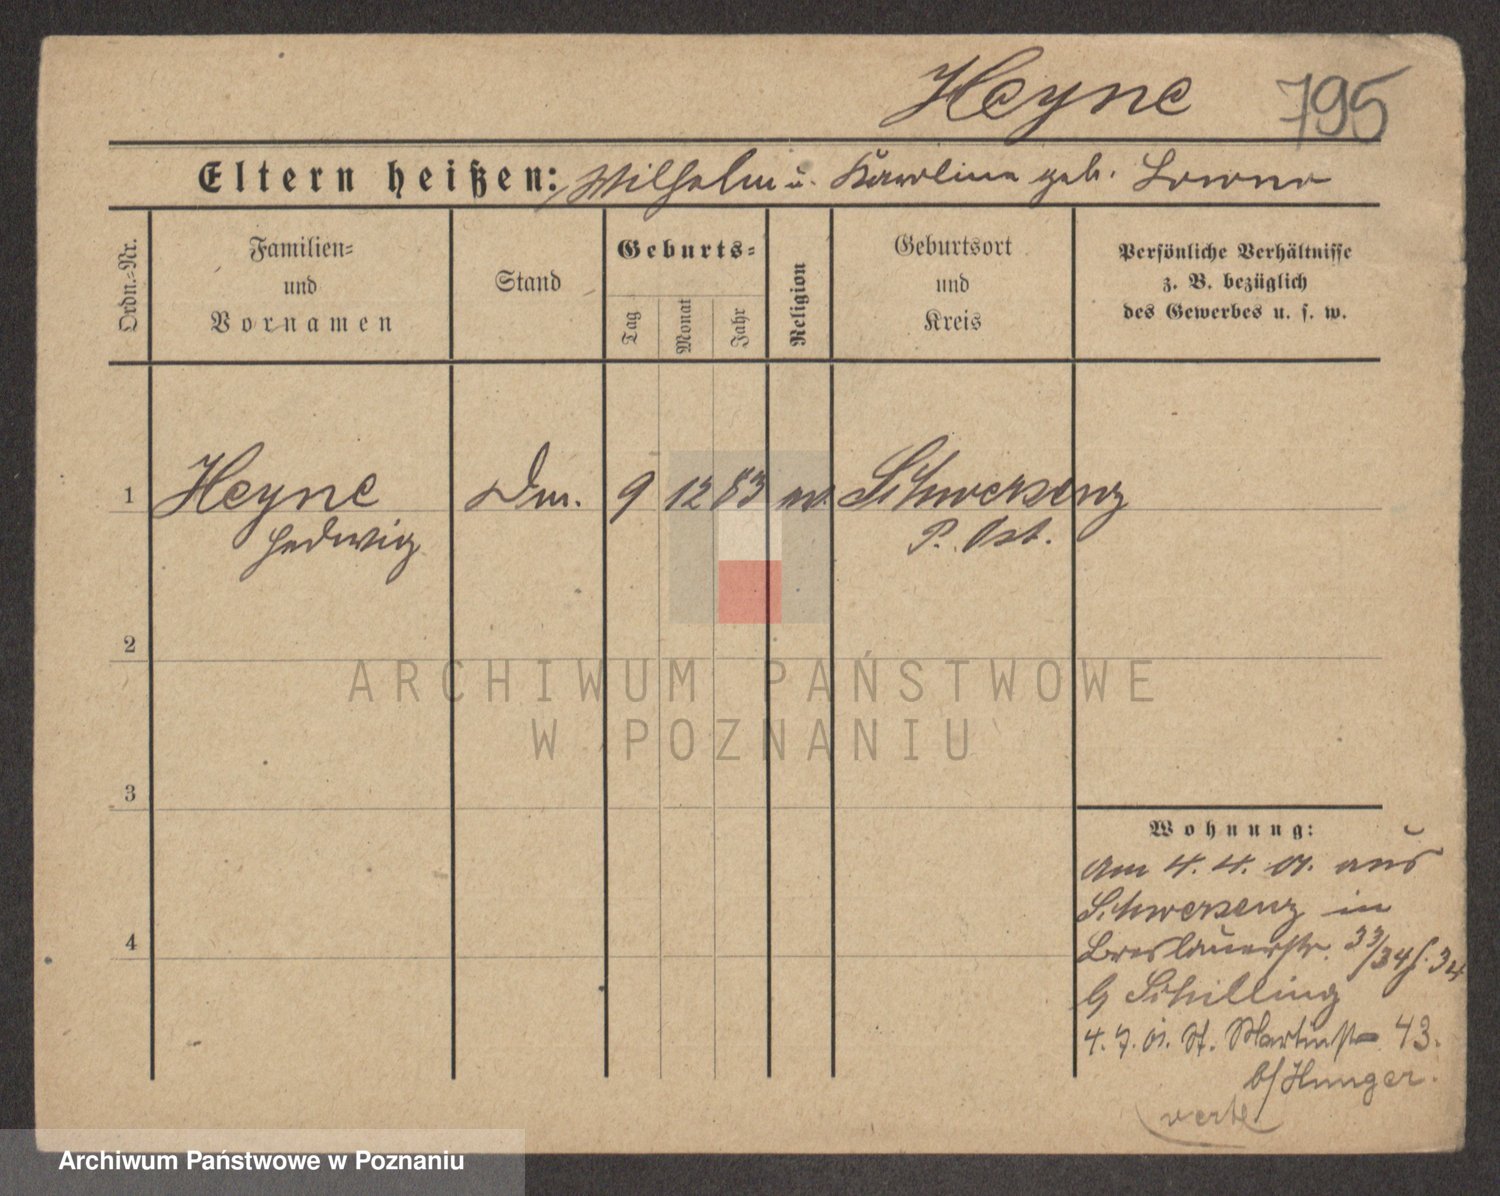 Heyne 795
Eltern heißen: Wilhelm u. Karolina geb.
Ordn.=Nr.
Familien=
und
Vornamen
Stand
Geburts=
Tag
Monat
Jahr
Religion
Geburtsort
und
Kreis
Persönliche Verhältnisse
z. B. bezüglich
des Gewerbes u. s. w.
1 Heyne 9 12 83 Schwersenz
Hedwig P. Ost.
2
ARCHIWUM PAŃSTWOWE
W POZNANIU
3
Wohnung:
Am 4. 4. 01. aus
Schwersenz in
Breslauerstr. 33/34
b/ Schilling
4. 7. 01. St. Martinstr 43.
b/ Hunger.
verte
4
Archiwum Państwowe w Poznaniu